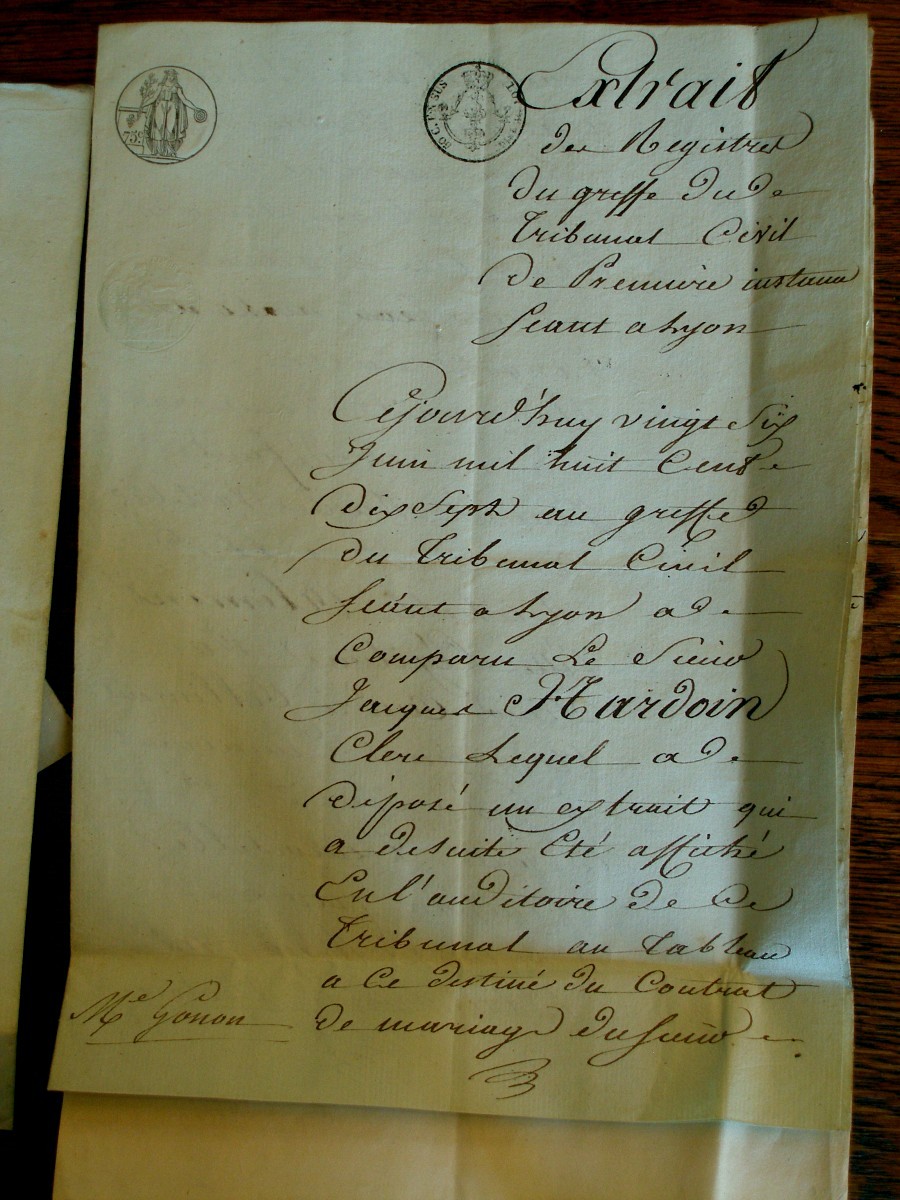 75c
50 C. EN SUS
Extrait
des Registres
du greffe du de
Tribunal Civil
de Premiere instance
Seant a Lyon
Cejourd'huy vingt Six
Juin mil huit Cent
dix Sept au greffe
du Tribunal Civil
Séant a Lyon a
Comparu Le Sieur
Jacques Hardoin
Clerc Lequel a
déposé un extrait qui
a desuite Eté affiché
En l'auditoire de Ce
Tribunal au Tableau
a Ce destiné du Contrat
Me Gonon
de mariage du Sieur